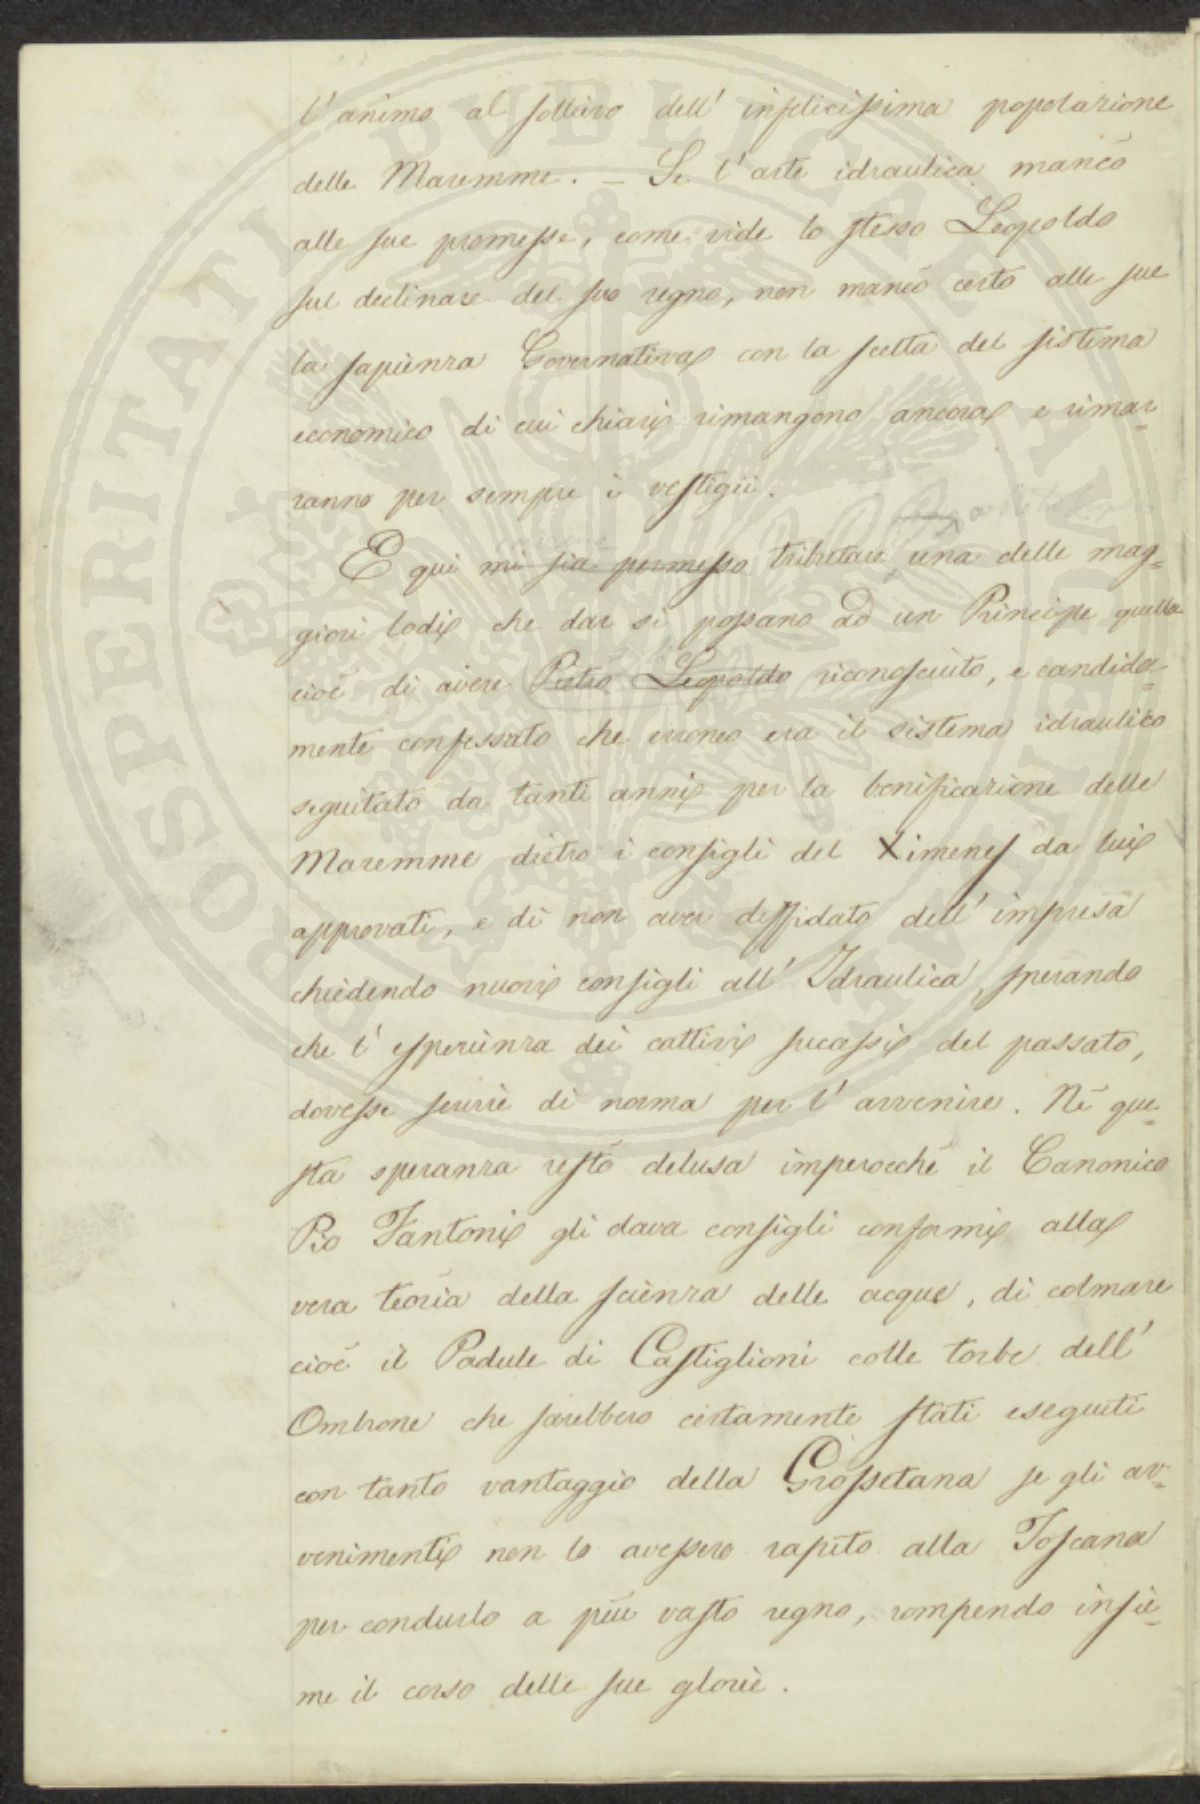 l'animo al sollievo dell' infelicissima popolazione
delle Maremme. – Se l'arte idraulica mancò
alle sue promesse, come vide lo stesso Leopoldo
sul declinare del suo regno, non mancò certo alle sue
la sapienza Governativa con la scelta del sistema
economico di cui chiari rimangono ancora e rimar=
ranno per sempre i vestigii.
E qui mi sia permesso tributare una delle mag=
giori lodi che dar si possano ad un Principe quella
cioè di avere Pietro Leopoldo riconosciuto, e candida=
mente confessato che erroneo era il sistema idraulico
seguitato da tanti anni per la bonificazione delle
Maremme dietro i consigli del Ximenes da lui
approvati, e di non aver diffidato dell' impresa
chiedendo nuovi consigli all' Idraulica, sperando
che l' esperienza dei cattivi sucessi del passato,
dovesse servire di norma per l' avvenire. Nè que=
sta speranza restò delusa imperocchè il Canonico
Pio Fantoni gli dava consigli conformi alla
vera teoria della scienza delle acque, di colmare
cioè il Padule di Castiglioni colle torbe dell'
Ombrone che sarebbero certamente stati eseguiti
con tanto vantaggio della Grossetana se gli av=
venimenti non lo avessero rapito alla Toscana
per condurlo a più vasto regno, rompendo insie=
me il corso delle sue glorie.
PROSPERITATI PUBLICAE